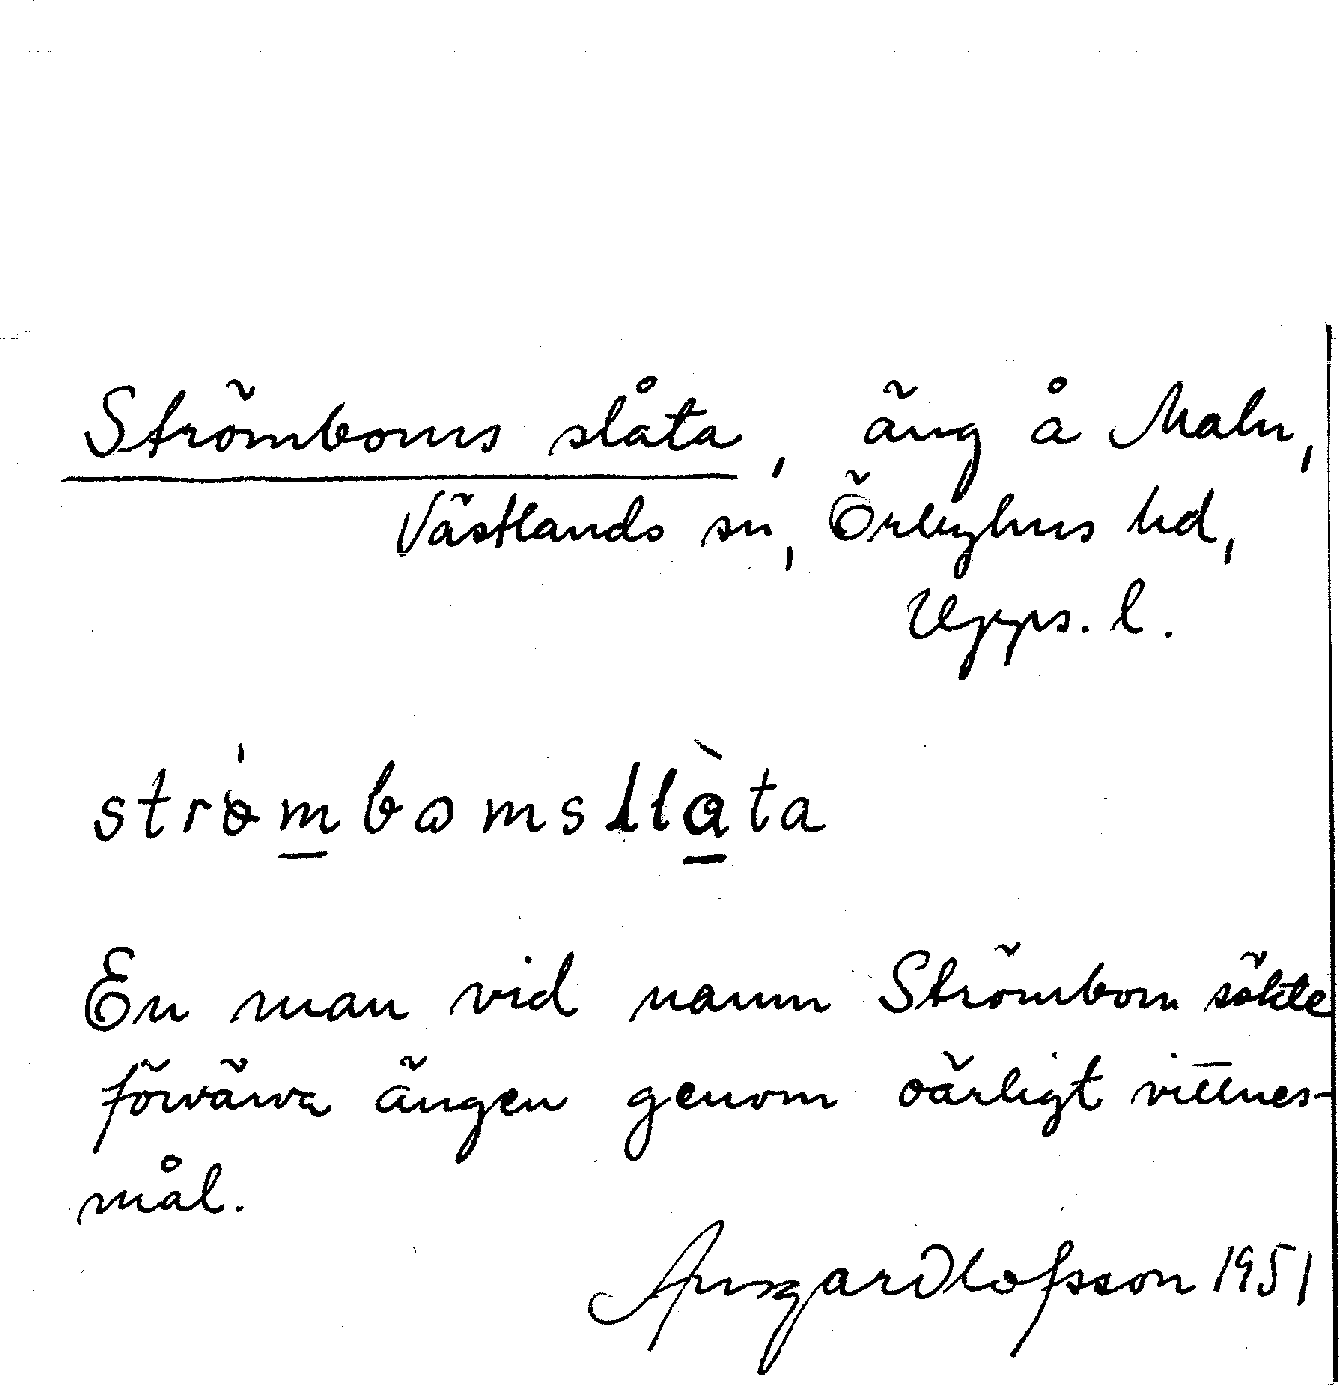 Strömboms slåta, äng å Maln,
Västlands sn, Örbyhus hd,
Upps. l.
strömbomsllàta
En man vid namn Strömbom sökte
förvärva ängen genom oärligt vittnes-
mål.
Ansgar Olofsson 1951